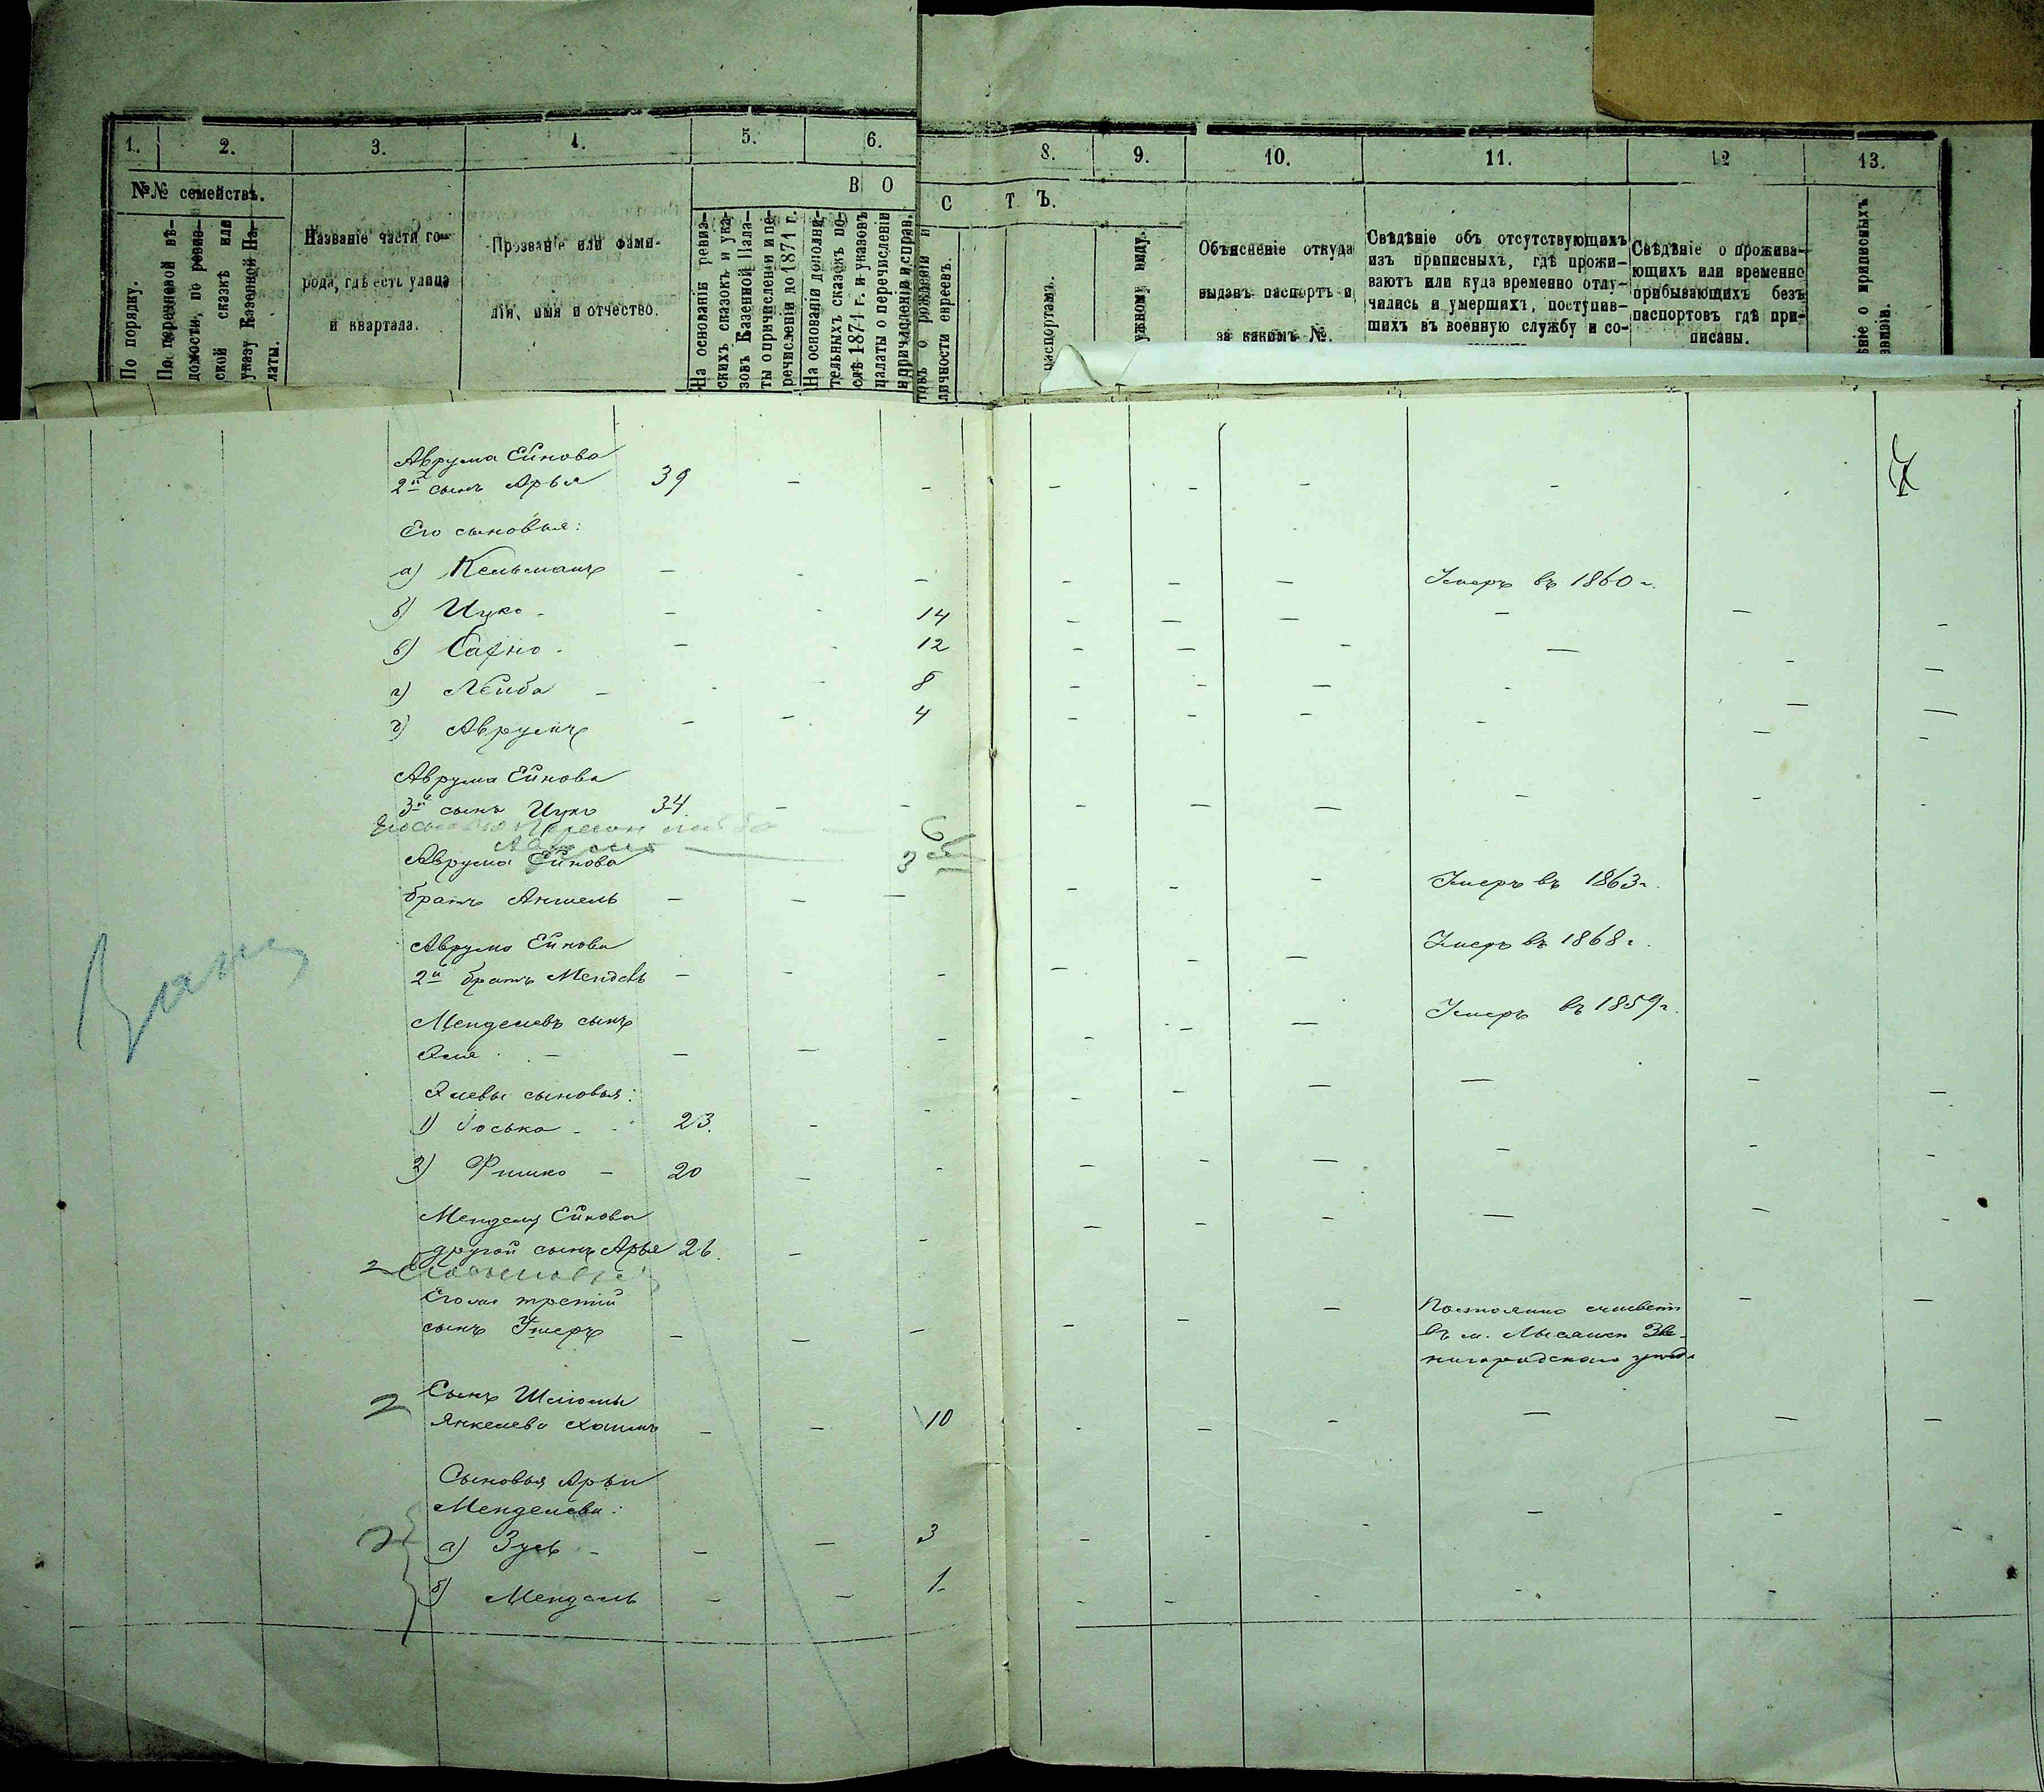 1. 2. 3. 4. 5. 6. 8. 9. 10. 11. 12 13.
№№ семействъ.
В О С Т Ъ.
По порядку.
По перечневой вѣ-
домости, по ревиз-
ской сказкѣ или
указу Казенной Па-
латы.
Названіе части го-
рода, гдѣ есть улица
и квартала.
Прозваніе или фами-
лія, имя и отчество.
На основаніи ревиз-
скихъ сказокъ и ука-
зовъ Казенной Пала-
ты о причисленіи и пе-
речисленіи до 1871 г.
На основаніи дополни-
тельныхъ сказокъ по-
слѣ 1871 г. и указовъ
палаты о перечисленіи
и причисленіи и справ.
товъ о рожденіи и
личности евреевъ.
паспортамъ.
ужному виду.
Объясненіе откуда
выданъ паспортъ и
за какимъ №.
Свѣдѣніе объ отсутствующихъ
изъ приписныхъ, гдѣ прожи-
ваютъ или куда временно отлу-
чились и умершихъ, поступив-
шихъ въ военную службу и со-
Свѣдѣніе о прожива-
ющихъ или временно
прибывающихъ безъ
паспортовъ гдѣ при-
писаны.
ѣніе о приписныхъ
Аврума Ейнова
2й сынъ Арья 39 - - - - - -
Его сыновья:
а) Кельманъ - - - - - - Умеръ въ 1860 г.
б) Ицко - - - 14 - - - - -
в) Сахно - - - 12 - - - - - -
г) Лейба - - - 8 - - - - - -
д) Аврумъ - - 4 - - - - - -
Аврума Ейнова
3й сынъ Ицко 34. - - - - - - - -
6
3
Аврума Ейнова
братъ Аншель - - - - - - Умеръ въ 1863 г.
Аврума Ейнова
2й братъ Мендель - - - - - - Умеръ въ 1868 г.
Менделевъ сынъ
Эля - - - - - - - Умеръ въ 1859 г.
Элевы сыновья:
1) Іоська - 23. - - - - - - - -
2) Фишко - 20 - - - - - - - -
Менделя Ейнова
другой сынъ Арья 26. - - - - - - -
2
Его же третій
сынъ Умеръ - - - - - - Постоянно живетъ - -
въ м. Лысянкѣ Зве-
нигородскаго уѣзда
2 Сынъ Шліомы
Янкелева Хаимъ - - 10 - - - - - -
Сыновья Арьи
Менделева:
2 а) Зусь - - - 3 - - - - - -
б) Мендель - - 1 - - - - -